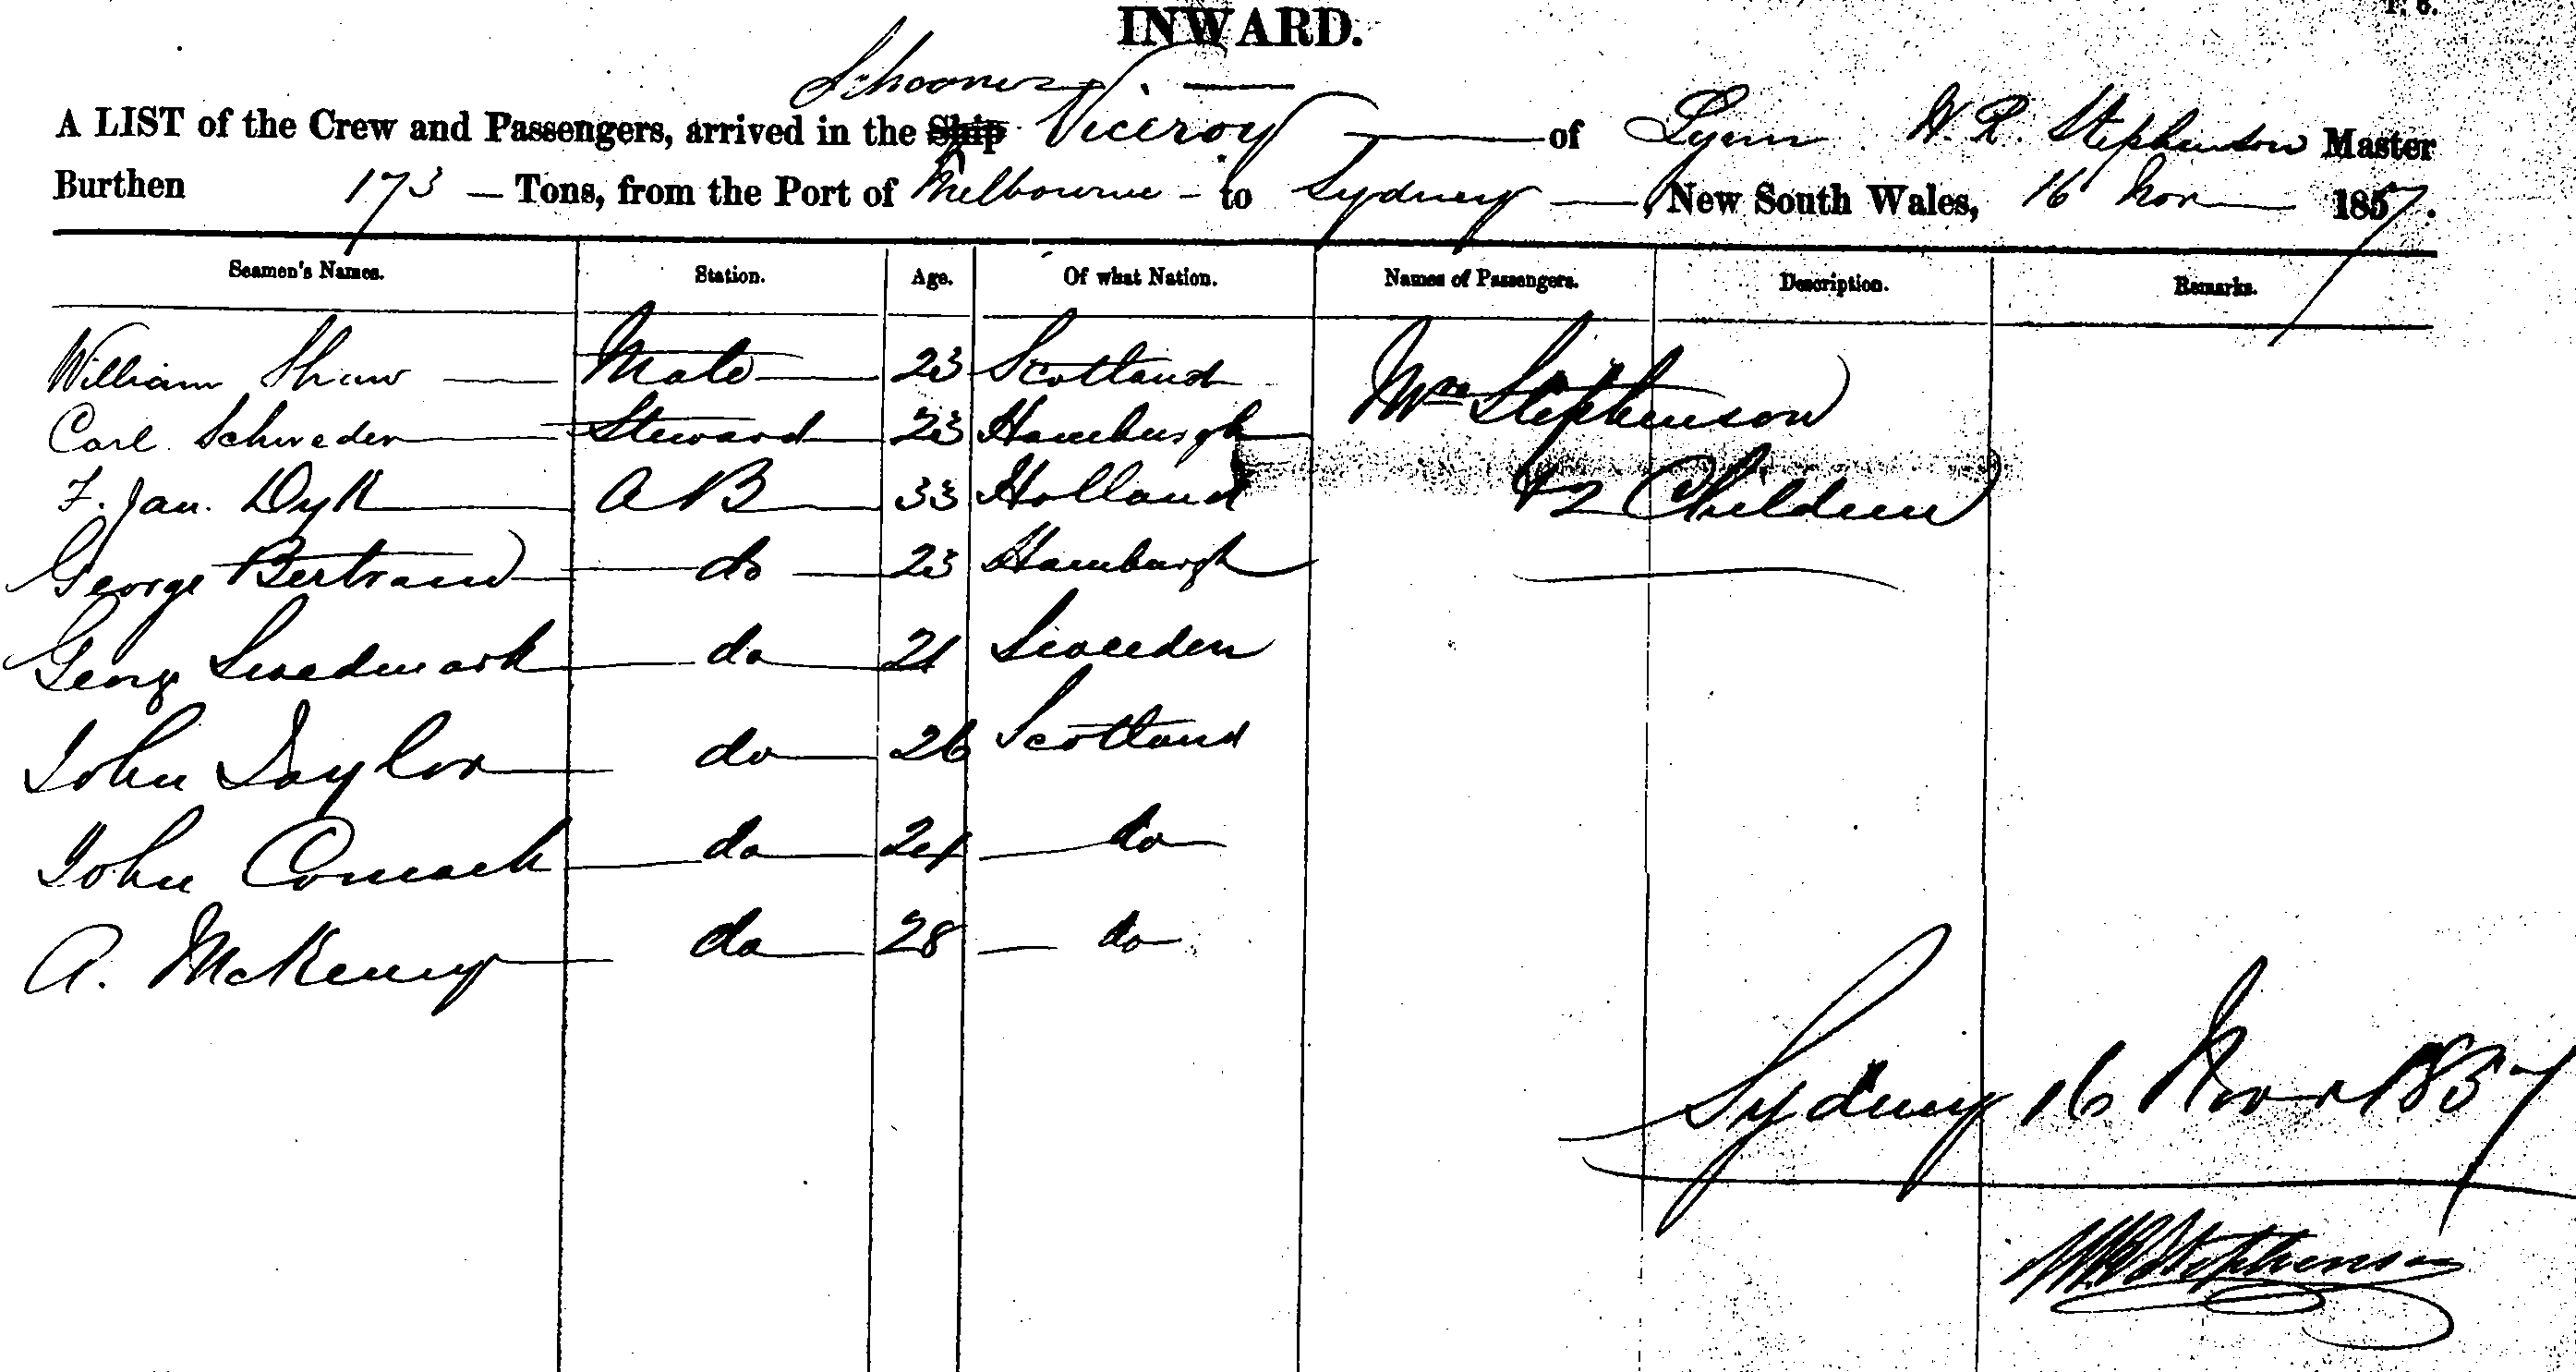 INWARD.
Schooner
A LIST of the Crew and Passengers, arrived in the Ship Viceroy — of Lynn W. R. Stephenson Master
Burthen 173 — Tons, from the Port of Melbourne - to Sydney — , New South Wales, 16 Nov — 1857.
Seamen's Names. Station. Age. Of what Nation. Names of Passengers. Description. Remarks.
William Shaw — Mate — 23 Scotland Mrs Stephenson
Carl Schweder — Steward — 23 Hamburgh
F. Jan. Dyk — A B — 33 Holland + 2 Children
George Bertrand — do — 23 Hamburgh
George Swedmark — do — 21 Sweeden
John Taylor — do — 26 Scotland
John Comack — do — 24 — do —
A. McKenny — do — 28 — do —
Sydney 16 Nov 1857
W R Stephenson